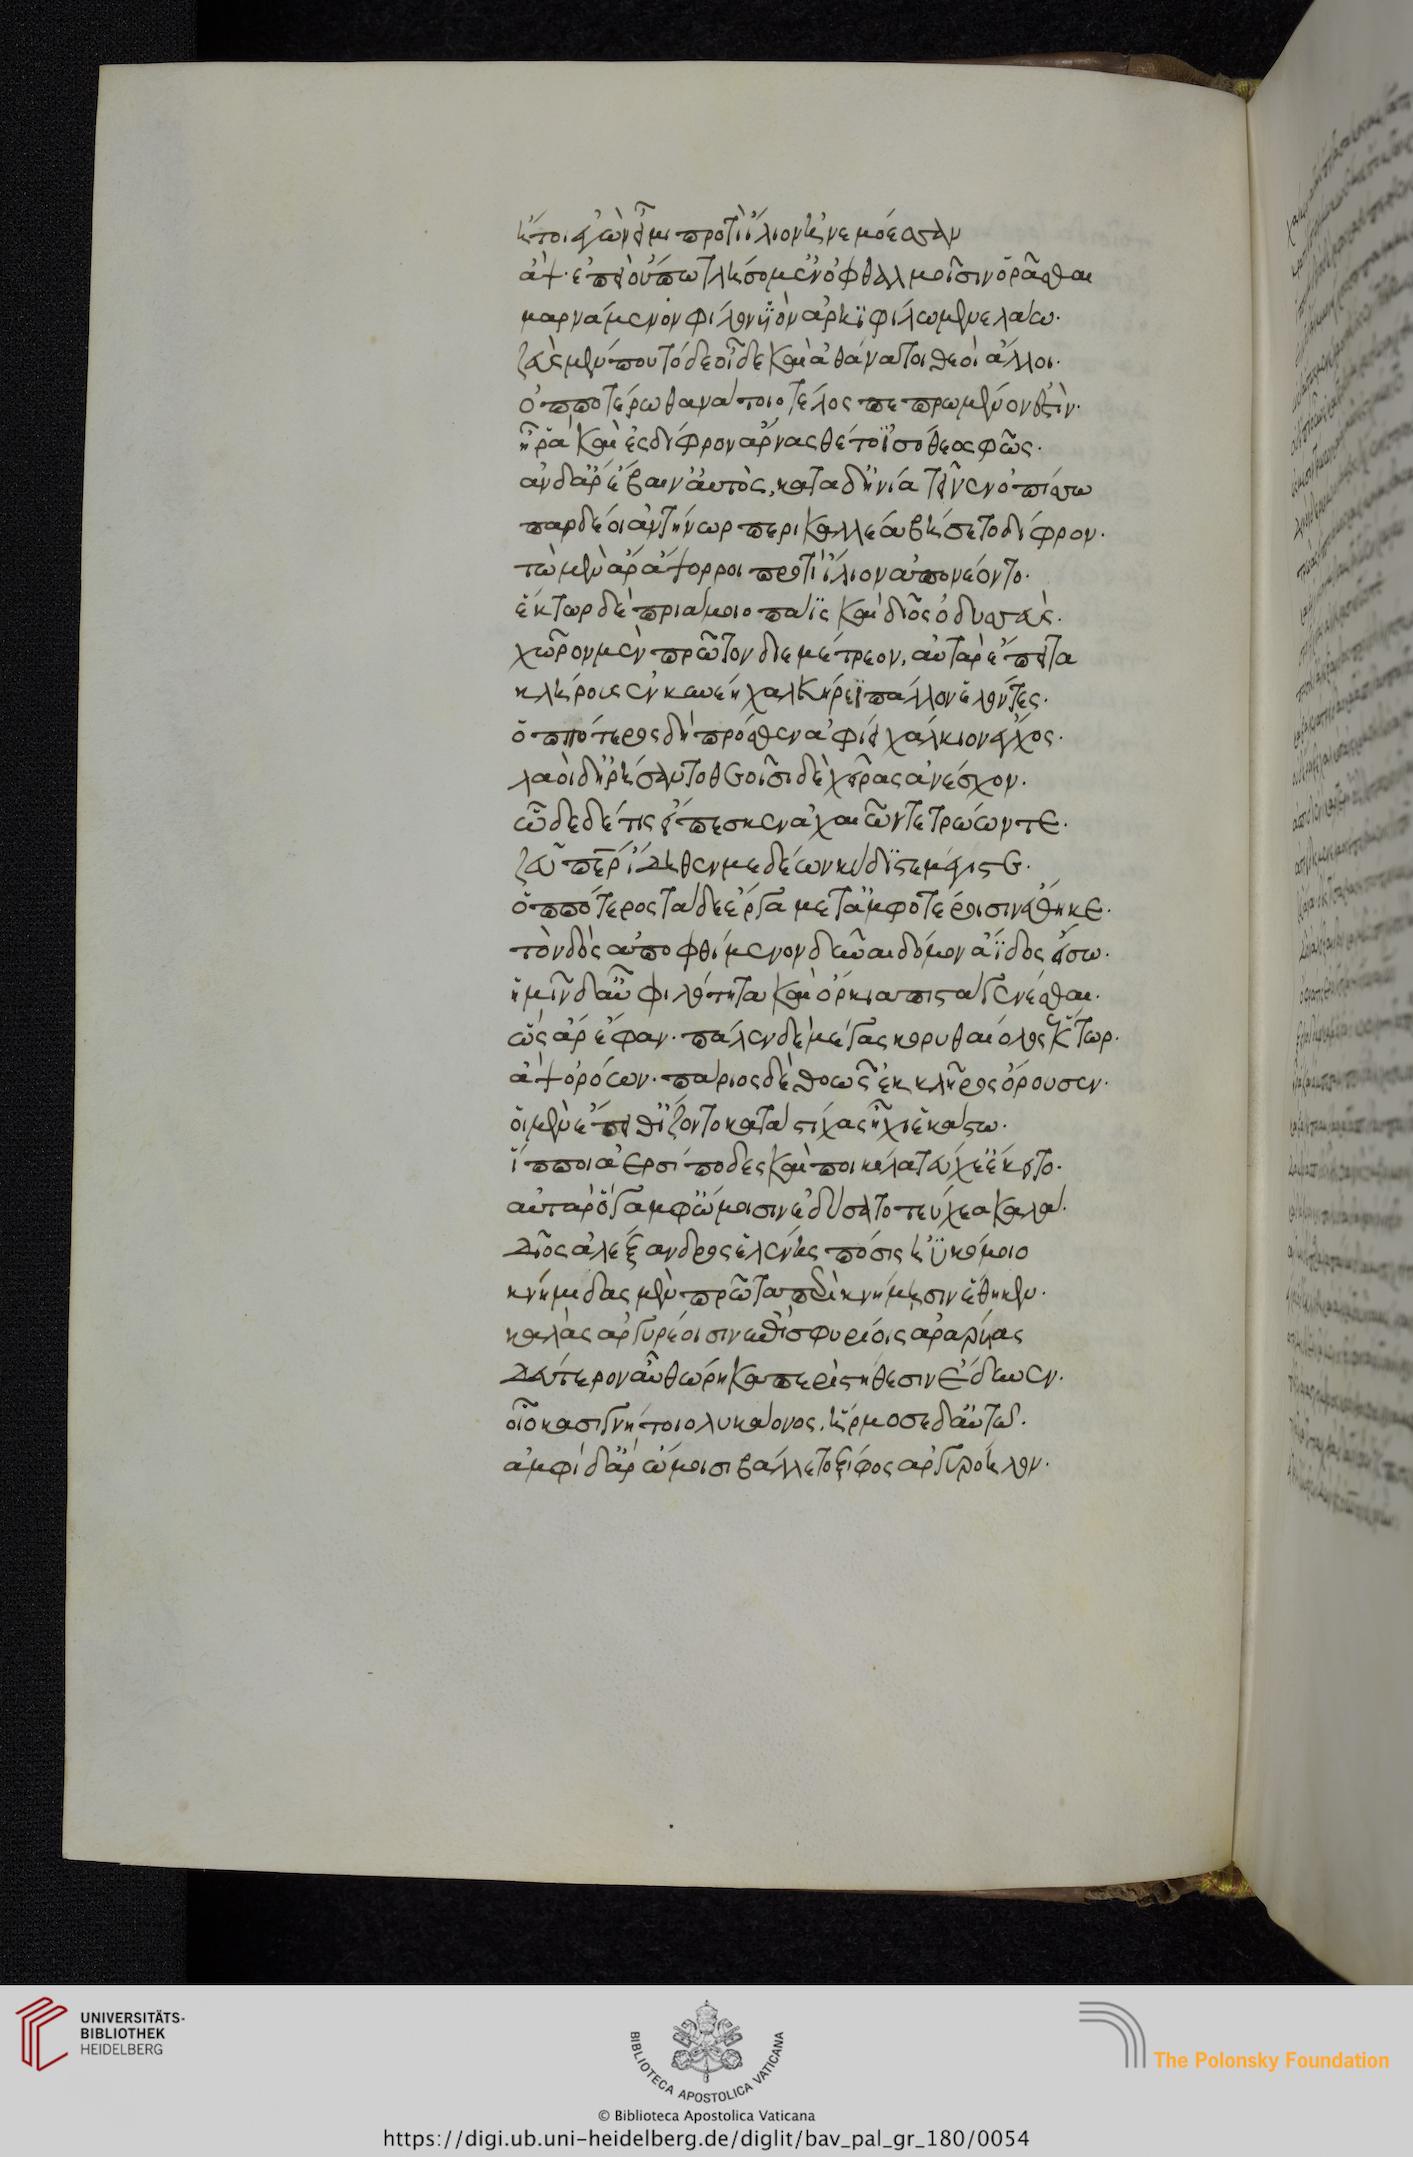 ἤτοι ἐγὼν εἶμι προτὶ ἴλιον ἠνεμόεσσαν
ἄψ· ἐπεὶ οὔπω τλήσομ' ἐν ὀφθαλμοῖσιν ὁρᾶσθαι
μαρνάμενον φίλον υἱὸν ἀρηϊφίλω μενελάω·
ζεὺς μέν που τόδε οἶδε καὶ ἀθάνατοι θεοὶ ἄλλοι·
ὁπποτέρω θανάτοιο τέλος πεπρωμένον ἐστίν·
ἦ ῥα καὶ ἐς δίφρον ἄρνας θέτο ἰσόθεος φῶς·
ἂν δ' ἄρ' ἔβαιν' αὐτὸς, κατὰ δ' ἡνία τεῖνεν ὀπίσσω
παρ δέ οἱ ἀντήνωρ περικαλλέα βήσετο δίφρον·
τὼ μὲν ἄρ' ἄψορροι προτὶ ἴλιον ἀπονέοντο·
ἕκτωρ δὲ πριάμοιο πάϊς καὶ δῖος ὀδυσσεὺς·
χῶρον μὲν πρῶτον διεμέτρεον, αὐτὰρ ἔπειτα
κλήρους ἐν κυνέη χαλκήρεϊ πάλλον ἑλόντες·
ὁππότερος δὴ πρόσθεν ἀφείη χάλκεον ἔγχος·
λαοὶ δ' ἠρήσαντο θεοῖσι δὲ χεῖρας ἀνέσχον·
ὧδε δέ τις εἴπεσκεν ἀχαιῶν τε τρώων τε·
ζεῦ πάτερ ἴδηθεν μεδέων κύδιστε μέγιστε·
ὁππότερος τάδε ἔργα μετ' ἀμφοτέροισιν ἔθηκε·
τὸν δὸς ἀποφθίμενον δῦναι δόμον ἄϊδος εἴσω·
ἡμῖν δ' αὖ φιλότητα καὶ ὅρκια πιστὰ γενέσθαι·
ὣς ἄρ' ἔφαν· πάλεν δὲ μέγας κορυθαίολος ἕκτωρ·
ἂψ ὁρόων· πάριος δὲ θοῶς ἐκ κλῆρος ὄρουσεν·
οἱ μὲν ἔπειθ' ἵζοντο κατὰ στίχας ἧχι ἑκάστω·
ἵπποι ἀερσίποδες καὶ ποικίλα τεύχε' ἔκειτο·
αὐτὰρ ὅγ' ἀμφ' ὤμοισιν ἐδύσατο τεύχεα καλά·
δῖος ἀλέξανδρος ἑλένης πόσις ἠϋκόμοιο
κνημίδας μὲν πρῶτα περὶ κνήμησιν ἔθηκεν·
καλὰς ἀργυρέοισιν ἐπισφυρίοις ἀραρυίας
δεύτερον αὖ θώρηκα περὶ στήθεσιν ἔδυνεν·
οἷο κασιγνήτοιο λυκάονος, ἥρμοσε δ' αὐτῶ·
ἀμφὶ δ' ἄρ' ὤμοισι βάλλετο ξίφος ἀργυρόηλον·
UNIVERSITÄTS-
BIBLIOTHEK
HEIDELBERG
BIBLIOTECA APOSTOLICA VATICANA
The Polonsky Foundation
© Biblioteca Apostolica Vaticana
https://digi.ub.uni-heidelberg.de/diglit/bav_pal_gr_180/0054